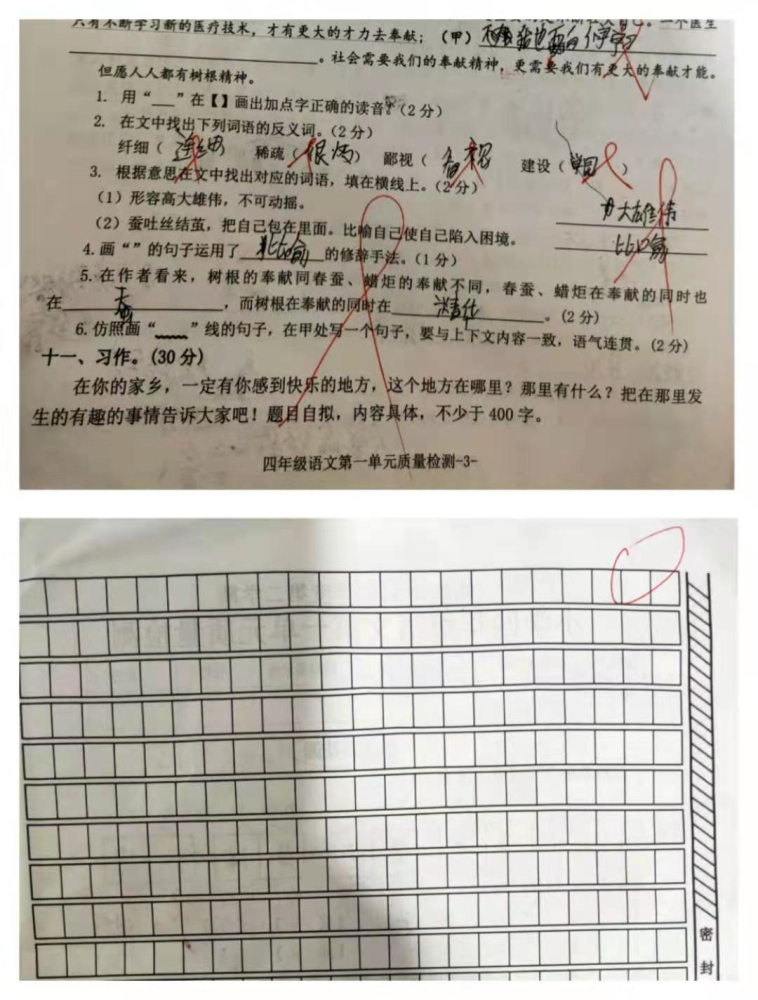 只有不断学习新的医疗技术，才有更大的才力去奉献；（甲）
。社会需要我们的奉献精神，更需要我们有更大的奉献才能。
但愿人人都有树根精神。
1. 用“___”在【】画出加点字正确的读音。（2分）
2. 在文中找出下列词语的反义词。（2分）
纤细（ ） 稀疏（ ） 鄙视（ ） 建设（ ）
3. 根据意思在文中找出对应的词语，填在横线上。（2分）
（1）形容高大雄伟，不可动摇。 力大雄伟
（2）蚕吐丝结茧，把自己包在里面。比喻自己使自己陷入困境。 比喻
4. 画“”的句子运用了 比喻 的修辞手法。（1分）
5. 在作者看来，树根的奉献同春蚕、蜡炬的奉献不同，春蚕、蜡炬在奉献的同时也
在 ，而树根在奉献的同时在 。（2分）
6. 仿照画“﹏﹏”线的句子，在甲处写一个句子，要与上下文内容一致，语气连贯。（2分）
十一、习作。（30分）
在你的家乡，一定有你感到快乐的地方，这个地方在哪里？那里有什么？把在那里发
生的有趣的事情告诉大家吧！题目自拟，内容具体，不少于400字。
四年级语文第一单元质量检测-3-
密
封